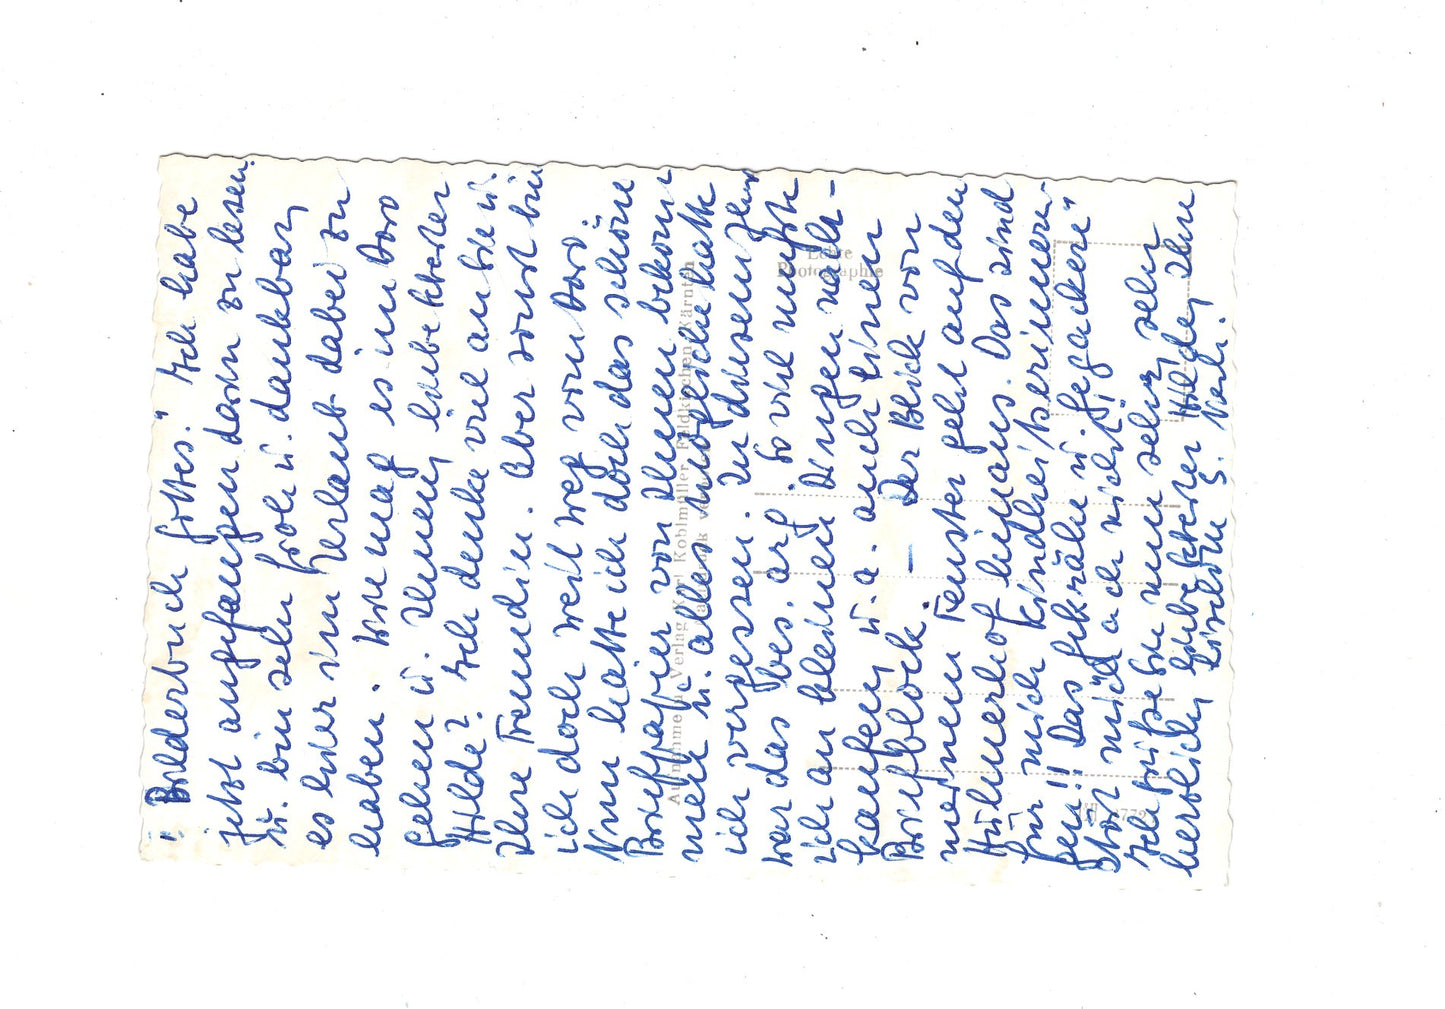 "Bilderbuch Gottes." Ich habe
jetzt angefangen darin zu lesen
u. bin sehr froh u. dankbar,
es hier im Urlaub dabei zu
haben. Wie mag es im Dorf
gehen u. Ihnen, liebe Schwester
Hilde? Ich denke viel an Sie u.
Ihre Freundin. Aber sonst bin
ich doch weit weg vom Dorf.
Nun hatte ich doch das schöne
Briefpapier von Ihnen bekom
mehr u. alles hatte
ich vergessen. In
war das bes. arg. So viel mußte
ich an kleinen Dingen
kaufen, u. a. auch einen
Briefblock. — Der Blick von
meinem Fenster geht auf den
Hühnerhof hinaus. Das sind
für mich Kindheitserinnerun-
gen! Das Gekrähe u. "Gegacker"
stört mich auch nicht!
Ich grüße Sie nun sehr, sehr
herzlich, liebe Schwester Hilde, Ihre
Echte
Photographie
Aufnahme u. Verlag Karl Kohlmüller, Feldkirchen, Kärnten